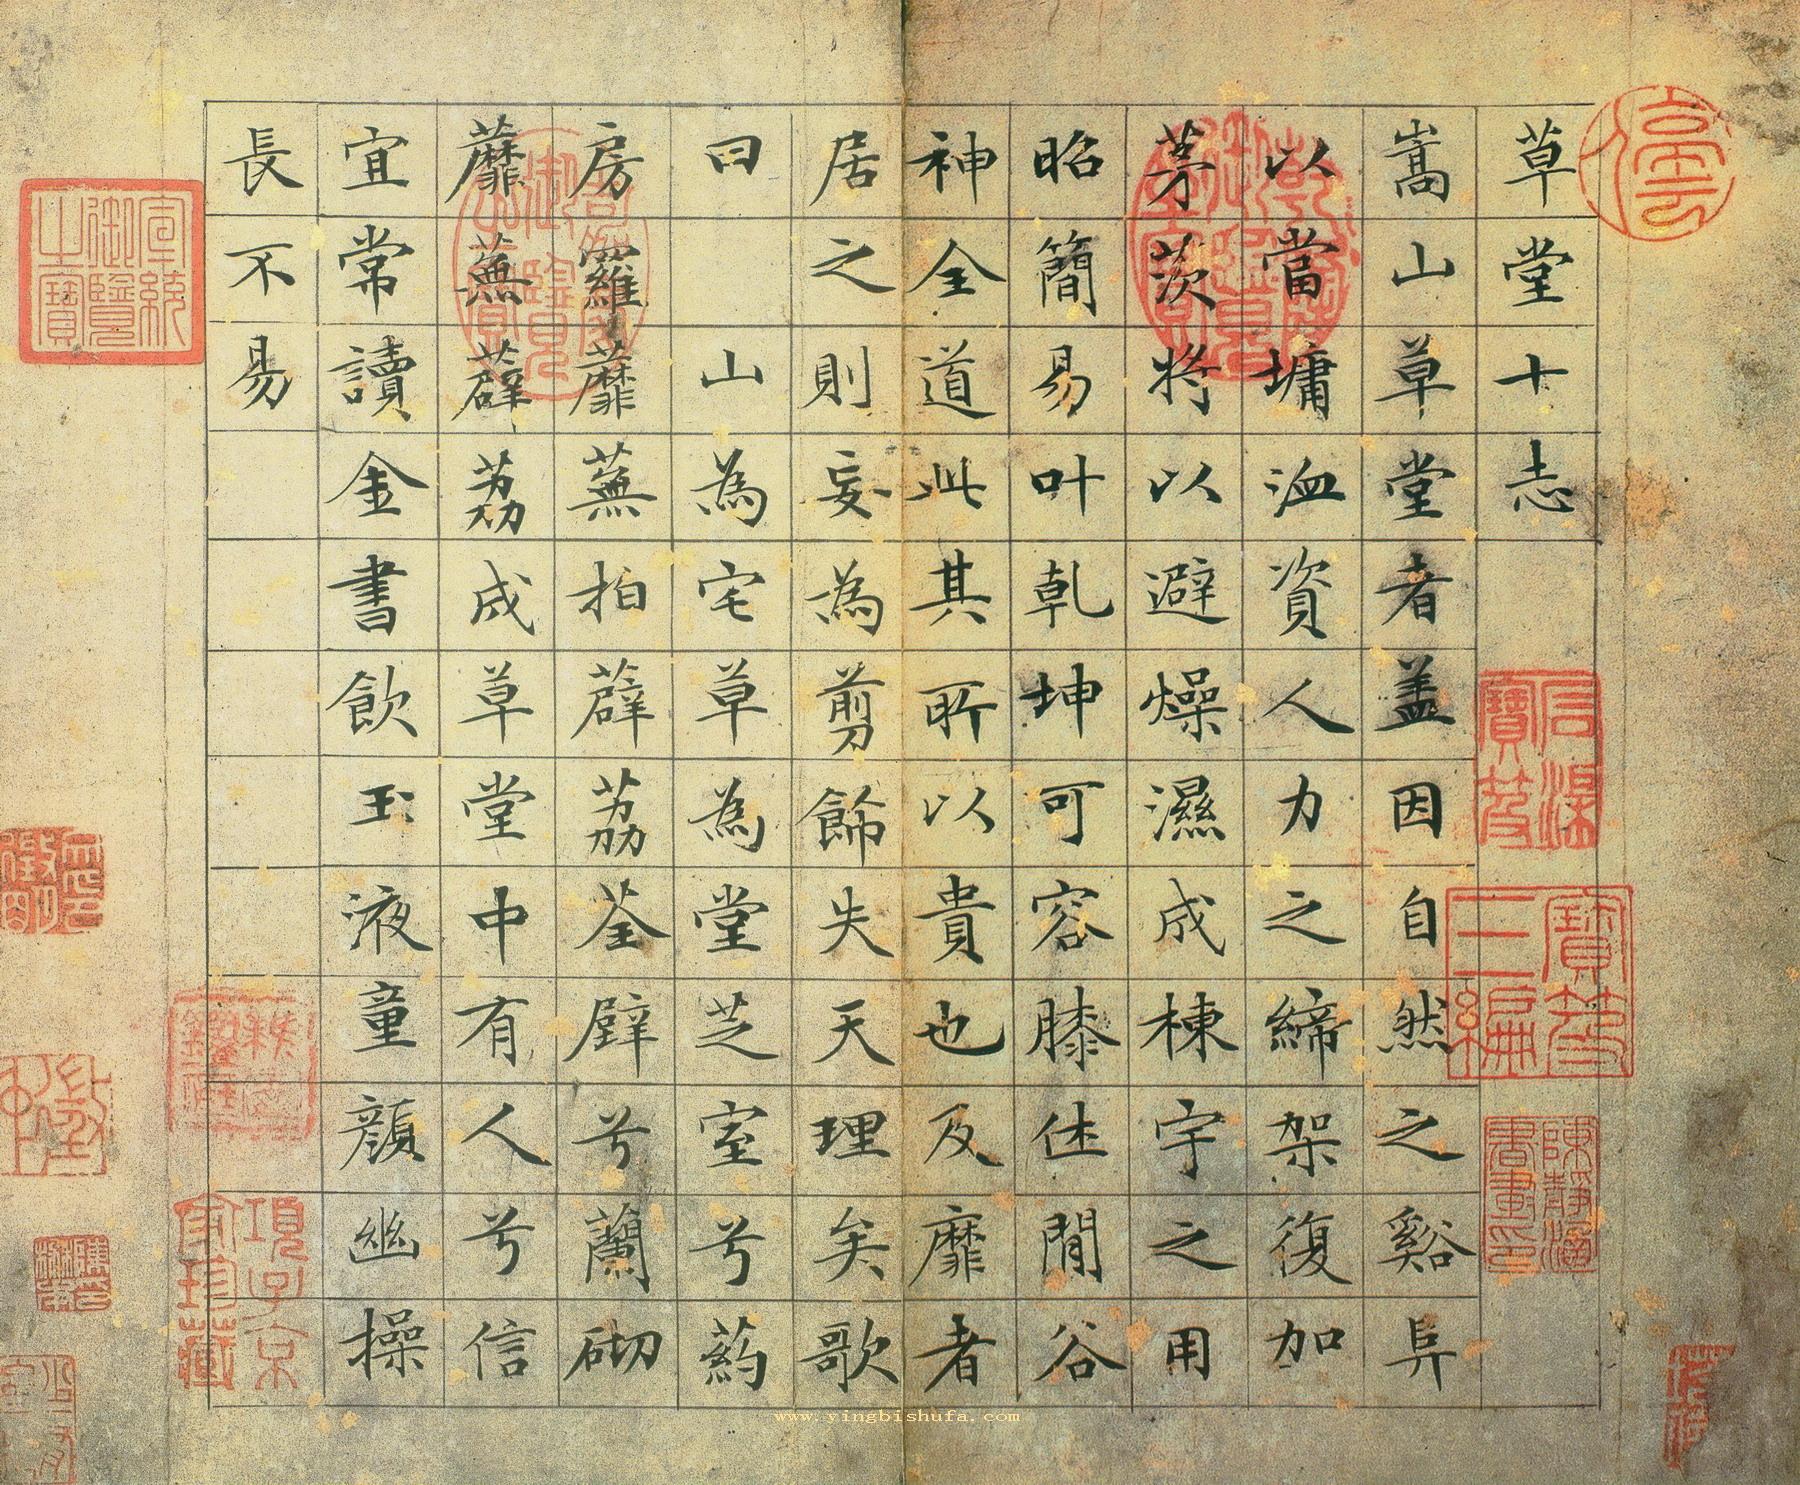 草堂十志
嵩山草堂者盖因自然之谿阜
以當墉洫資人力之締架復加
茅茨將以避燥濕成棟宇之用
昭簡易叶乾坤可容膝休閒谷
神全道此其所以貴也及靡者
居之則妄為剪餙失天理矣歌
曰 山為宅草為堂芝室兮葯
房羅蘼蕪拍薜荔荃壁兮蘭砌
蘼蕪薜荔成草堂中有人兮信
宜常讀金書飲玉液童顏幽操
長不易
石渠寶笈
寶笈三編
乾隆御覽之寶
嘉慶御覽之寶
宣統御覽之寶
項子京家珍藏
www.yingbishufa.com